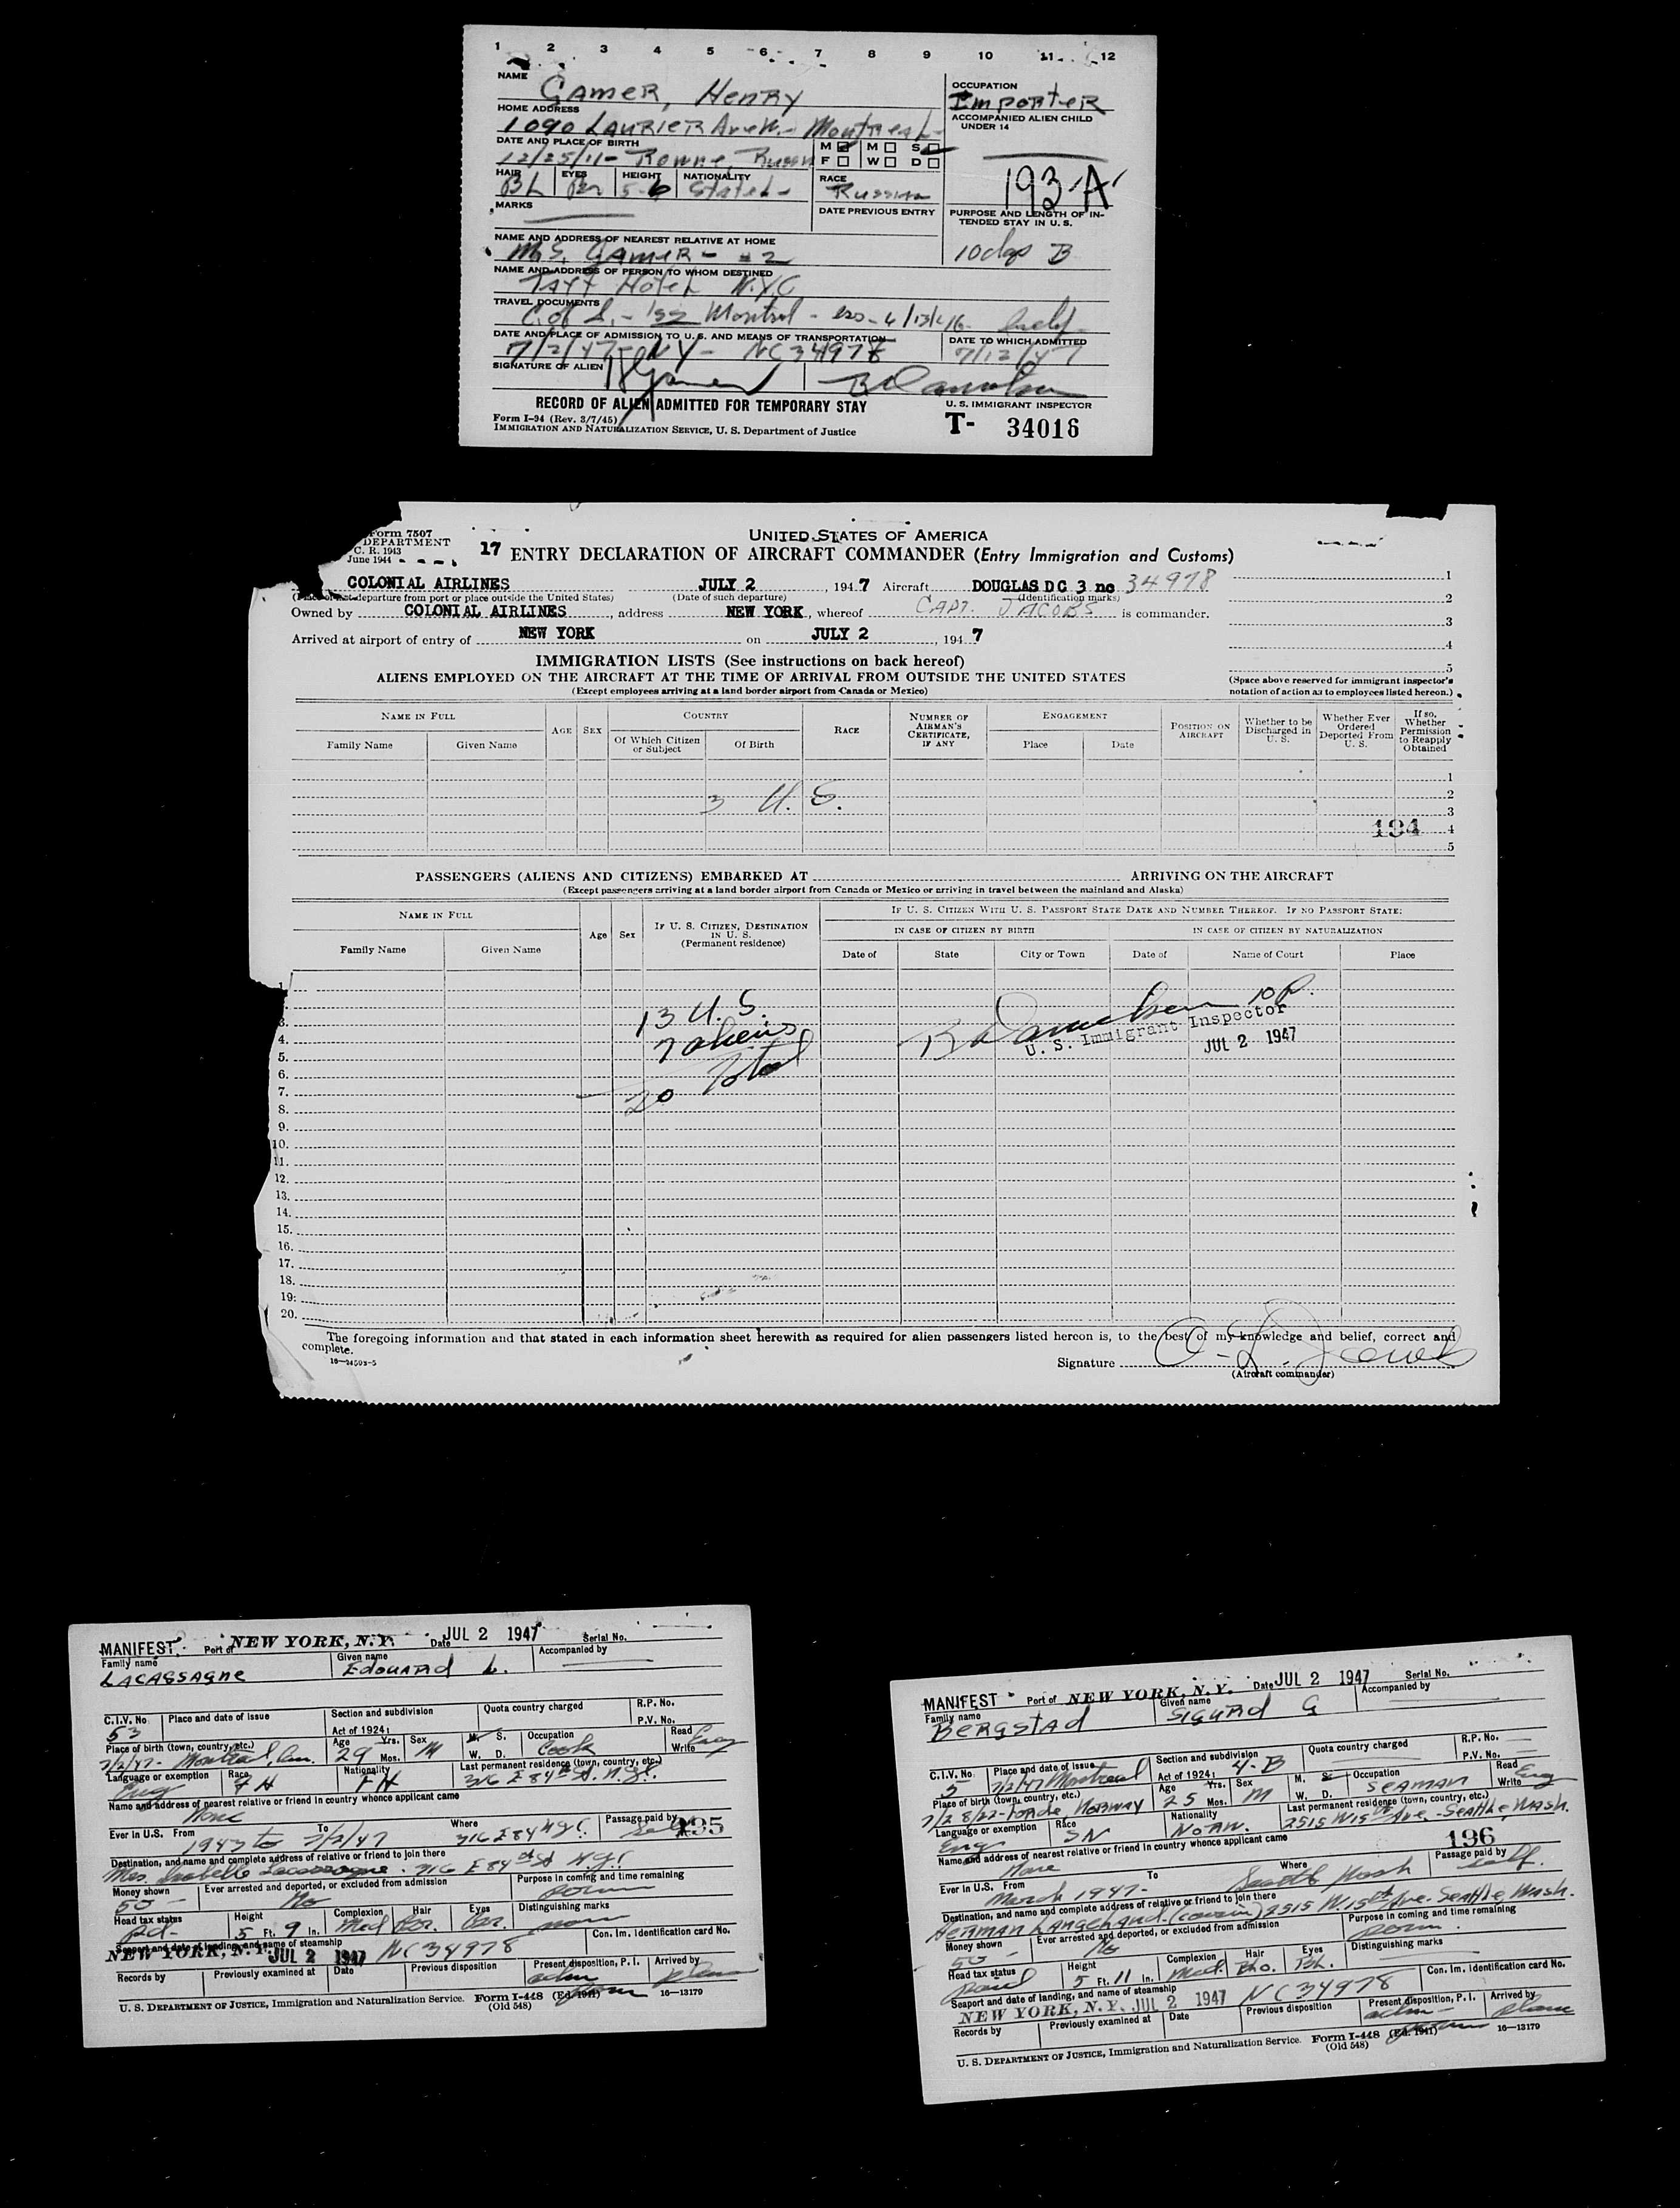 1 2 3 4 5 6 7 8 9 10 11 12
NAME Gamer, Henry
OCCUPATION Importer
HOME ADDRESS 1090 Laurier Ave W. - Montreal -
ACCOMPANIED ALIEN CHILD UNDER 14
DATE AND PLACE OF BIRTH 12/25/11 - Rowne, Russia
M F M S W D
193 'A'
HAIR BL EYES Br HEIGHT 5-6 NATIONALITY Stateless RACE Russian
MARKS
DATE PREVIOUS ENTRY
PURPOSE AND LENGTH OF INTENDED STAY IN U. S.
10 dys B
NAME AND ADDRESS OF NEAREST RELATIVE AT HOME
Gamer - #2
NAME AND ADDRESS OF PERSON TO WHOM DESTINED
Taft Hotel N.Y.C
TRAVEL DOCUMENTS
C. of I. - iss Montreal - 4/13/46
DATE AND PLACE OF ADMISSION TO U. S. AND MEANS OF TRANSPORTATION
7/2/47 - NY - NC 34978
DATE TO WHICH ADMITTED
7/12/47
SIGNATURE OF ALIEN H Gamer
B Danielson
U. S. IMMIGRANT INSPECTOR
RECORD OF ALIEN ADMITTED FOR TEMPORARY STAY
Form I-94 (Rev. 3/7/45)
IMMIGRATION AND NATURALIZATION SERVICE, U. S. Department of Justice
T- 34016
Form 7507
DEPARTMENT
C. R. 1943
June 1944
UNITED STATES OF AMERICA
17 ENTRY DECLARATION OF AIRCRAFT COMMANDER (Entry Immigration and Customs)
COLONIAL AIRLINES JULY 2, 1947 Aircraft DOUGLAS DC 3 no 34978
(Place of last departure from port or place outside the United States) (Date of such departure) (Identification marks)
Owned by COLONIAL AIRLINES, address NEW YORK, whereof CAPT. JACOBS is commander.
Arrived at airport of entry of NEW YORK on JULY 2, 1947
1
2
3
4
5
(Space above reserved for immigrant inspector's notation of action as to employees listed hereon.)
IMMIGRATION LISTS (See instructions on back hereof)
ALIENS EMPLOYED ON THE AIRCRAFT AT THE TIME OF ARRIVAL FROM OUTSIDE THE UNITED STATES
(Except employees arriving at a land border airport from Canada or Mexico)
NAME IN FULL AGE SEX COUNTRY RACE NUMBER OF AIRMAN'S CERTIFICATE, IF ANY ENGAGEMENT POSITION ON AIRCRAFT Whether to be Discharged in U. S. Whether Ever Ordered Deported From U. S. If so, Whether Permission to Reapply Obtained
Family Name Given Name Of Which Citizen or Subject Of Birth Place Date
1
3 U. S. 2
3
194 4
5
PASSENGERS (ALIENS AND CITIZENS) EMBARKED AT ARRIVING ON THE AIRCRAFT
(Except passengers arriving at a land border airport from Canada or Mexico or arriving in travel between the mainland and Alaska)
NAME IN FULL Age Sex IF U. S. CITIZEN, DESTINATION IN U. S. (Permanent residence) IF U. S. CITIZEN WITH U. S. PASSPORT STATE DATE AND NUMBER THEREOF. IF NO PASSPORT STATE:
IN CASE OF CITIZEN BY BIRTH IN CASE OF CITIZEN BY NATURALIZATION
Family Name Given Name Date of State City or Town Date of Name of Court Place
1.
3. 13 U. S. B Danielson 10 P.
4. 7 aliens U. S. Immigrant Inspector
5. JUL 2 1947
6. Total
7. 20
8.
9.
10.
11.
12.
13.
14.
15.
16.
17.
18.
19.
20.
The foregoing information and that stated in each information sheet herewith as required for alien passengers listed hereon is, to the best of my knowledge and belief, correct and complete.
16—24503-5
Signature
(Aircraft commander)
MANIFEST Port of NEW YORK, N.Y. Date JUL 2 1947 Serial No.
Family name LACASSAGNE Given name Edouard L. Accompanied by
C.I.V. No. 53 Place and date of issue Section and subdivision Act of 1924: Quota country charged R.P. No. P.V. No.
Place of birth (town, country, etc.) 7/2/47 - Montreal, Can. Age 29 Yrs. Mos. Sex M M. S. W. D. Occupation Cook Read Write Eng
Language or exemption Eng Race FH Nationality FH Last permanent residence (town, country, etc.) 316 E 84th St. N.Y.C.
Name and address of nearest relative or friend in country whence applicant came
None
Ever in U.S. From 1943 To 7/2/47 Where 316 E 84 NYC Passage paid by self 195
Destination, and name and complete address of relative or friend to join there
Mrs. Isabelle Lacassagne. 316 E 84th St N.Y.C
Money shown 50 — Ever arrested and deported, or excluded from admission No Purpose in coming and time remaining perm
Head tax status pd - Height 5 Ft. 9 In. Complexion Med Hair Br. Eyes Br. Distinguishing marks none
Seaport and date of landing, and name of steamship NEW YORK, N.Y. JUL 2 1947 NC 34978 Con. Im. Identification card No.
Records by Previously examined at Date Previous disposition Present disposition, P. I. adm perm Arrived by plane
U. S. DEPARTMENT OF JUSTICE, Immigration and Naturalization Service. Form I-448 (Ed. 1941) (Old 548) 16—13179
MANIFEST Port of NEW YORK, N.Y. Date JUL 2 1947 Serial No.
Family name Bergstad Given name Sigurd G Accompanied by
C.I.V. No. 5 Place and date of issue 7/2/47 Montreal Section and subdivision Act of 1924: 4-B Quota country charged R.P. No. P.V. No.
Place of birth (town, country, etc.) 7/28/22 - Norway Age 25 Yrs. Mos. Sex M M. S. W. D. Occupation Seaman Read Write Eng
Language or exemption Eng Race SN Nationality Norw. Last permanent residence (town, country, etc.) 2515 W 15th Ave. - Seattle, Wash.
Name and address of nearest relative or friend in country whence applicant came
None 196
Ever in U.S. From March 1947 - To Where Seattle Wash Passage paid by self.
Destination, and name and complete address of relative or friend to join there
Herman Langeland (cousin) 2515 W. 15th Ave. Seattle, Wash.
Money shown 50 — Ever arrested and deported, or excluded from admission No Purpose in coming and time remaining perm.
Head tax status Paid Height 5 Ft. 11 In. Complexion Med. Hair Blo. Eyes Bl. Distinguishing marks
Seaport and date of landing, and name of steamship NEW YORK, N.Y. JUL 2 1947 NC 34978 Con. Im. Identification card No.
Records by Previously examined at Date Previous disposition Present disposition, P. I. adm - perm Arrived by plane
U. S. DEPARTMENT OF JUSTICE, Immigration and Naturalization Service. Form I-448 (Ed. 1941) (Old 548) 16—13179